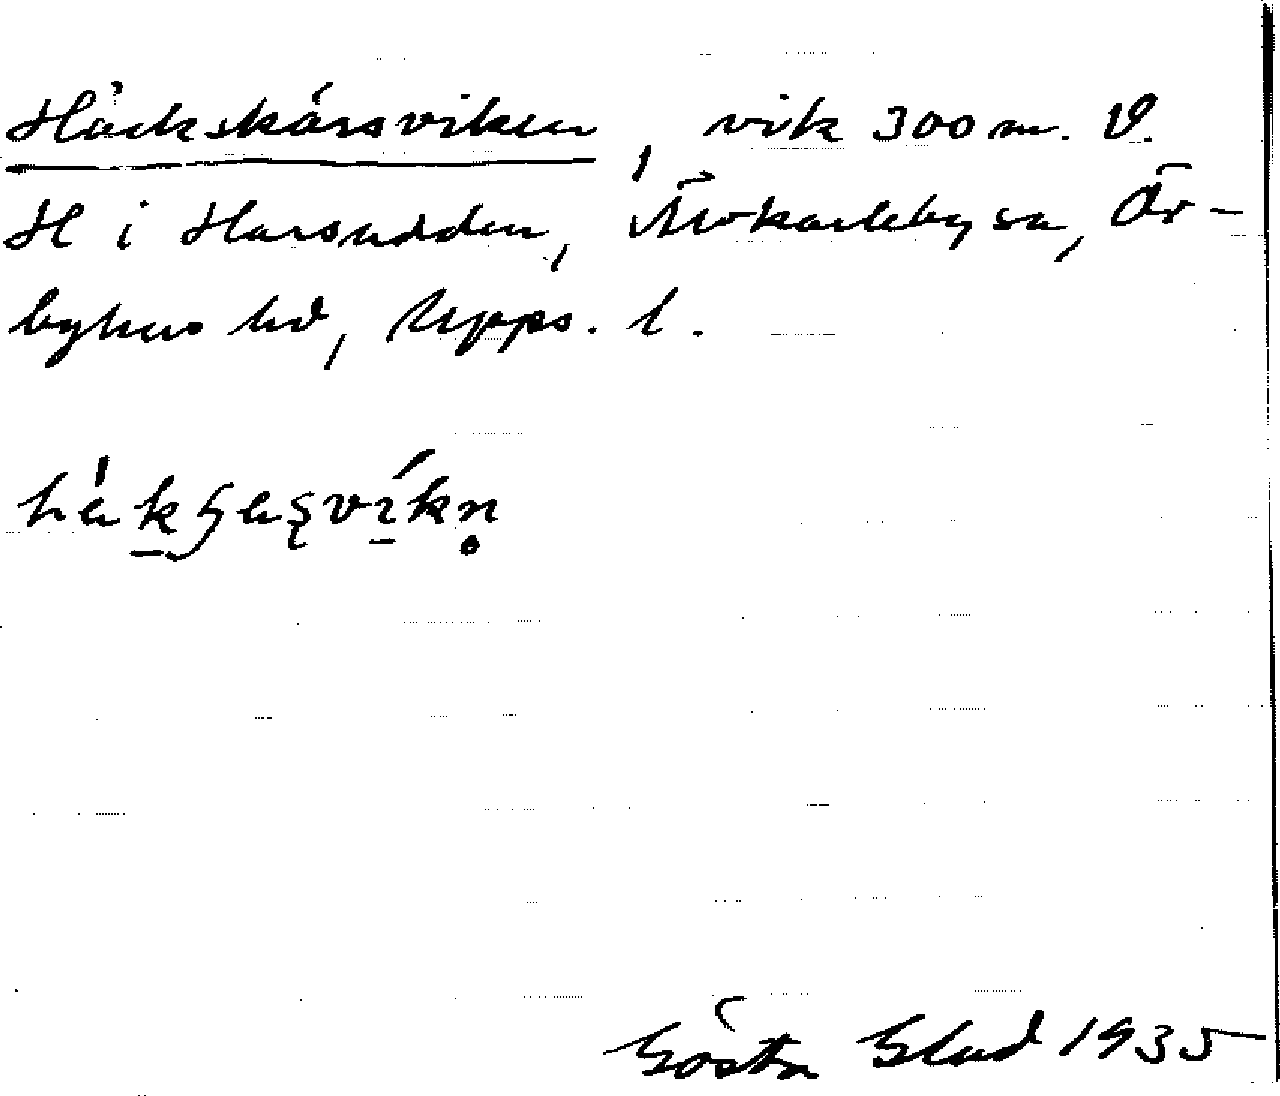 Håckskärsviken, vik 300 m. V.
H i Harsudden, Älvkarleby sn, Ör-
byhus hd, Upps. l.
Gösta Blad 1935